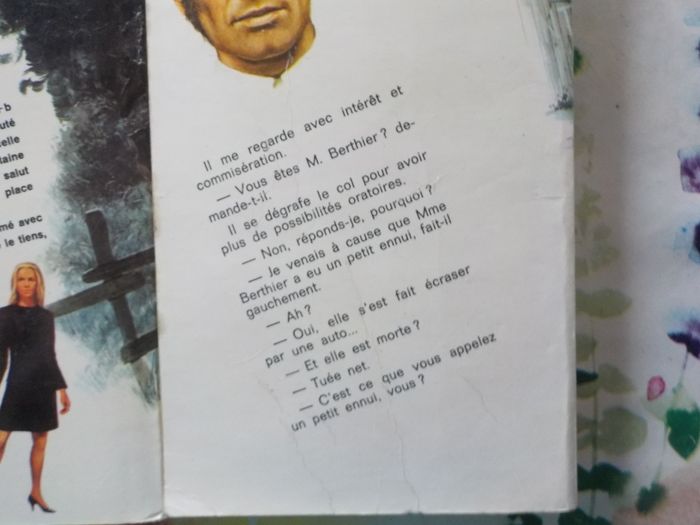 -b
uté
elle
laine
salut
place
mé avec
le tiens,
Il me regarde avec intérêt et
commisération.
— Vous êtes M. Berthier ? de-
mande-t-il.
Il se dégrafe le col pour avoir
plus de possibilités oratoires.
— Non, réponds-je, pourquoi ?
— Je venais à cause que Mme
Berthier a eu un petit ennui, fait-il
gauchement.
— Ah ?
— Oui, elle s'est fait écraser
par une auto...
— Et elle est morte ?
— Tuée net.
— C'est ce que vous appelez
un petit ennui, vous ?